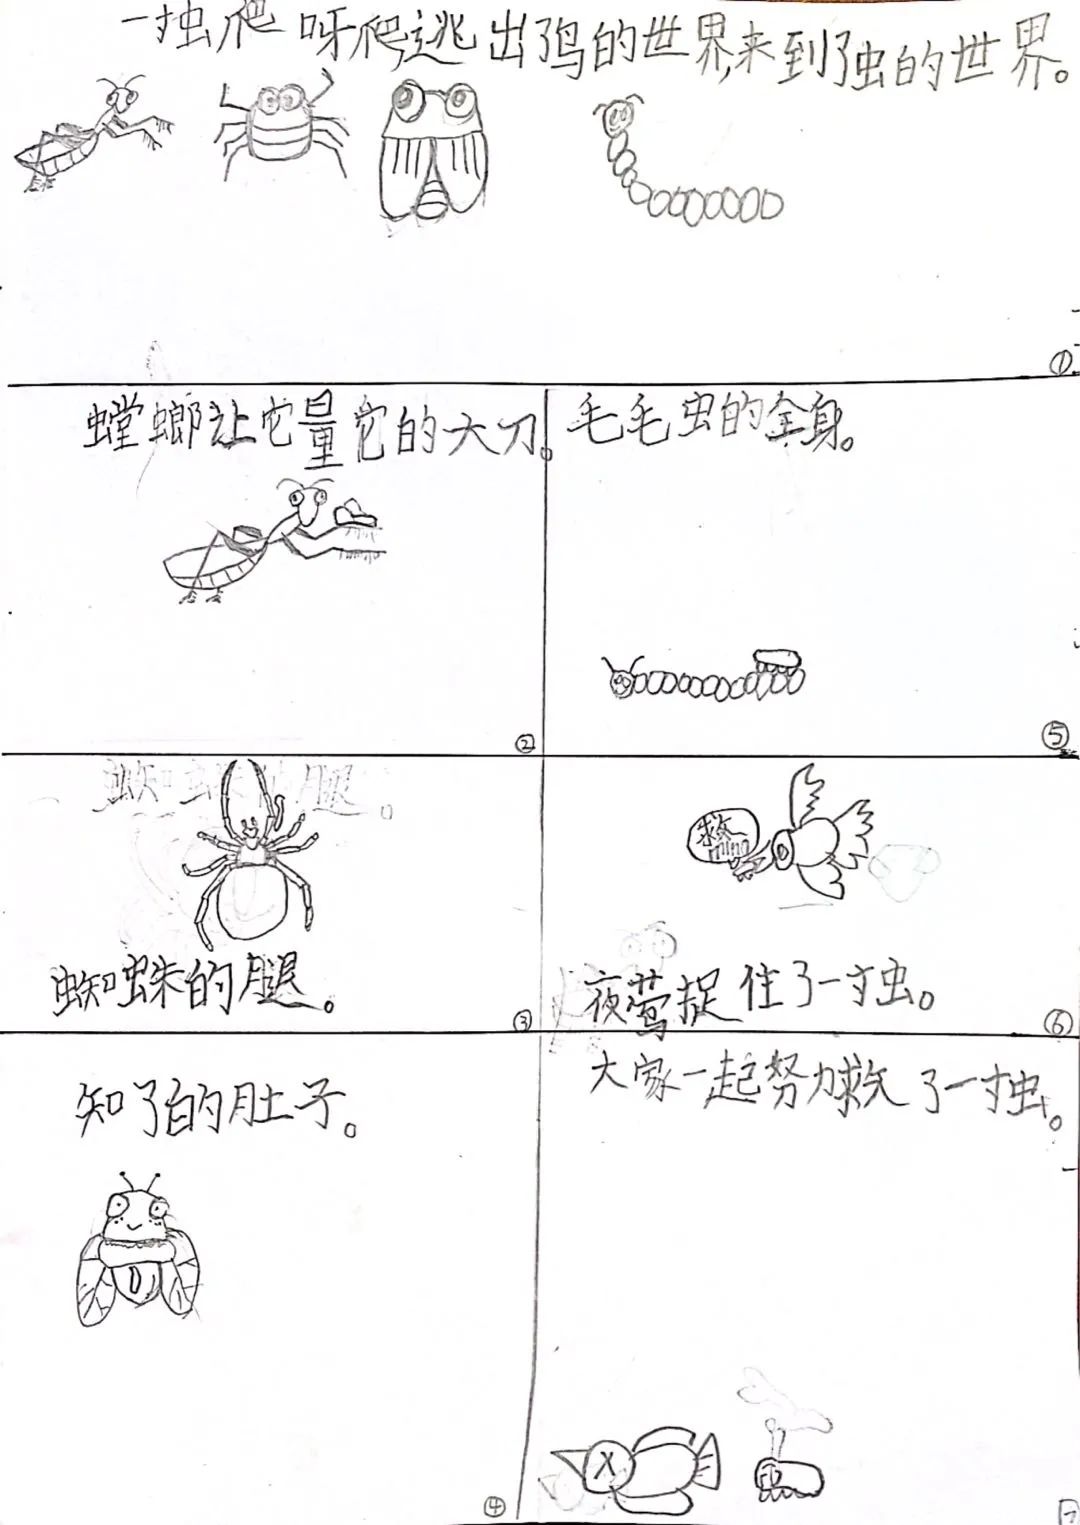 一寸虫爬呀爬,逃出了鸟的世界,来到了虫的世界。
①
螳螂让它量它的大刀。
②
蜘蛛的腿。
蜘蛛的腿。
③
知了的肚子。
④
毛毛虫的全身。
⑤
救命
夜莺捉住了一寸虫。
⑥
大家一起努力救了一寸虫。
⑦